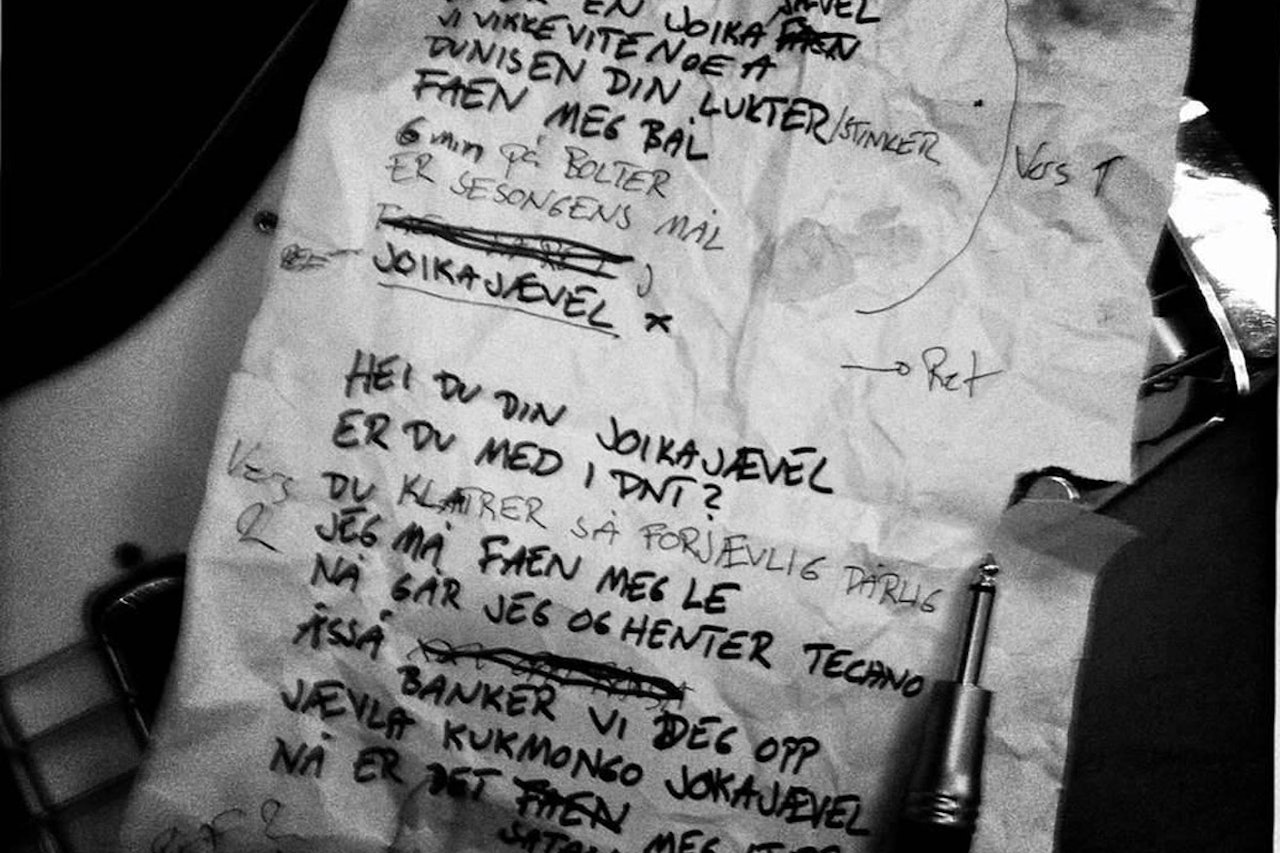 EN JOIKA JÆVEL
VI VIKKE VITE NOE A
DUNISEN DIN LUKTER/STINKER
FAEN MEG BAL
6 min på BOLTER
ER SESONGENS MÅL
Vers 1
JOIKAJÆVEL x
→ Ref
HEI DU DIN JOIKAJÆVEL
ER DU MED I DNT?
Vers 2
DU KLATRER SÅ FORJÆVLIG DÅRLIG
JEG MÅ FAEN MEG LE
NÅ GÅR JEG OG HENTER TECHNO
ÅSSÅ
BANKER VI DEG OPP
JÆVLA KUKMONGO JOKAJÆVEL
NÅ ER DET FAEN
MEG